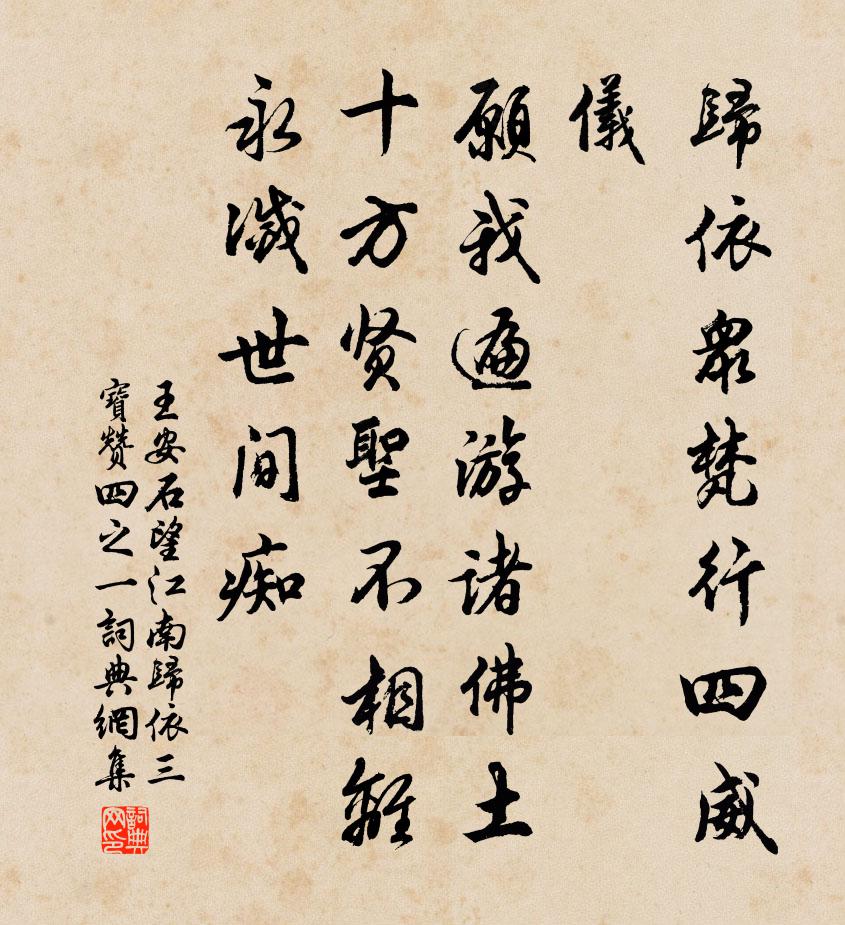 歸依眾梵行四威
儀
願我遍游諸佛土
十方贤聖不相離
永滅世间痴
王安石望江南歸依三
寶贊四之一詞典網集
詞典
网印